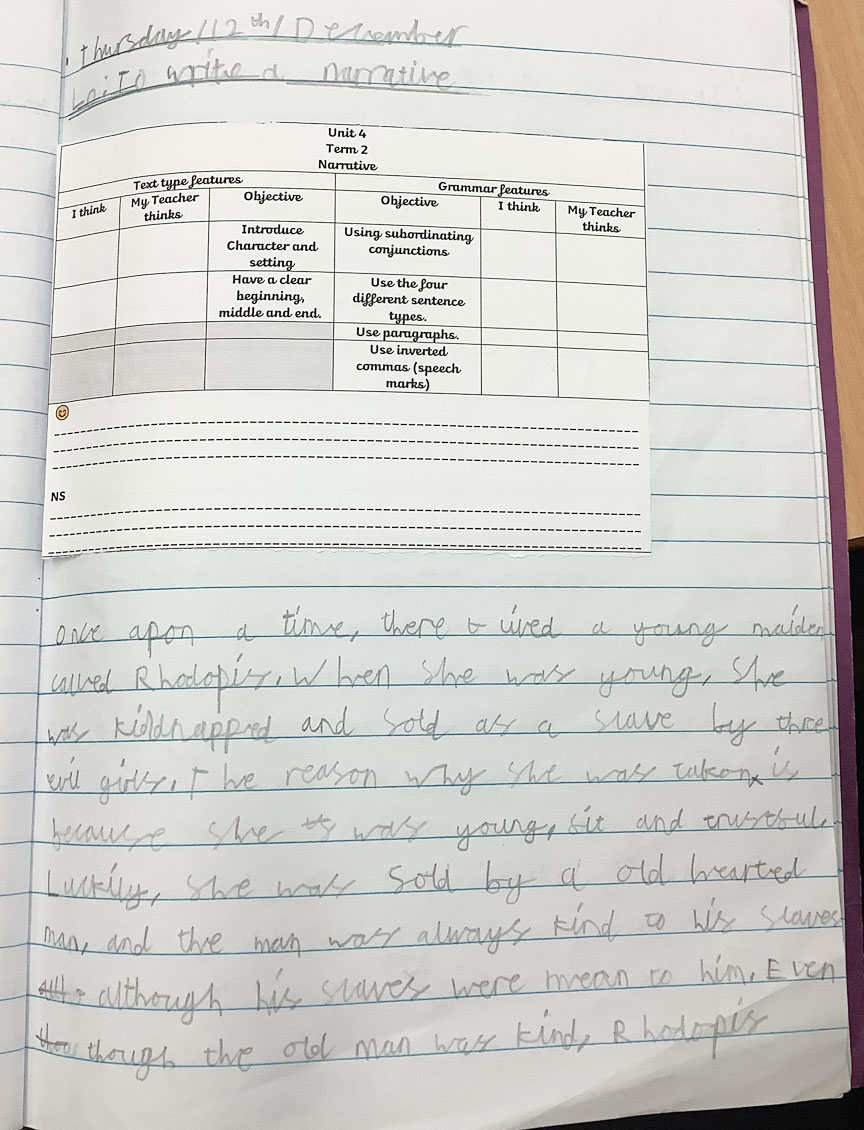 Thursday/12th/December
Lo: To write a narrative
Unit 4
Term 2
Narrative
Text type features
Grammar features
I think
My Teacher thinks
Objective
Objective
I think
My Teacher thinks
Introduce Character and setting
Using subordinating conjunctions
Have a clear beginning, middle and end.
Use the four different sentence types.
Use paragraphs.
Use inverted commas (speech marks)
NS
Once apon a time, there lived a young maiden
called Rhodopis. When she was young, she
was kidnapped and sold as a slave by three
evil girls. The reason why she was taken is
because she was young, fit and trustful.
Luckily, she was sold by a old hearted
man, and the man was always kind to his slaves
although his slaves were mean to him. Even
though the old man was kind, Rhodopis